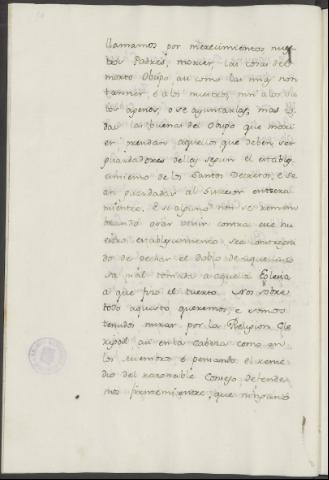 llamamos por merecimientos nues
tros Padres, morier, las cosas del
muerto Obispo asi como las muy non
tanner e a los nuestros, nin a los de
los agenos, o se ayuntarlas, mas to
das las buenas del Obispo que mori
er prendan aquellos que deben ser
guardadores de ley segun el establez
cimiento de los Santos Decretos, e se
an guardadas al Succesor entera
mientre. E se alguno non se remem
brando osar venir contra este nu
estro establecimiento sea constreñi
do de pechar el doblo de aquellas co
sa mal tomada a aquela Eglesia
a que fizo el tuerto. Nos sobre
todo aquesto queremos, e somos
tenudos mirar por la Religion Cle
rigal asi en la cabeza como en
los miembros e pensando el reme
dio del razonable Consejo, defende
mos firmemientre, que ninguno